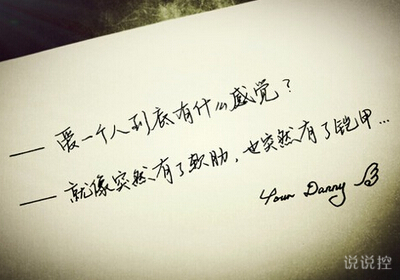 —— 爱一个人到底有什么感觉?
—— 就像突然有了软肋,也突然有了铠甲...
Your Danny
说说控